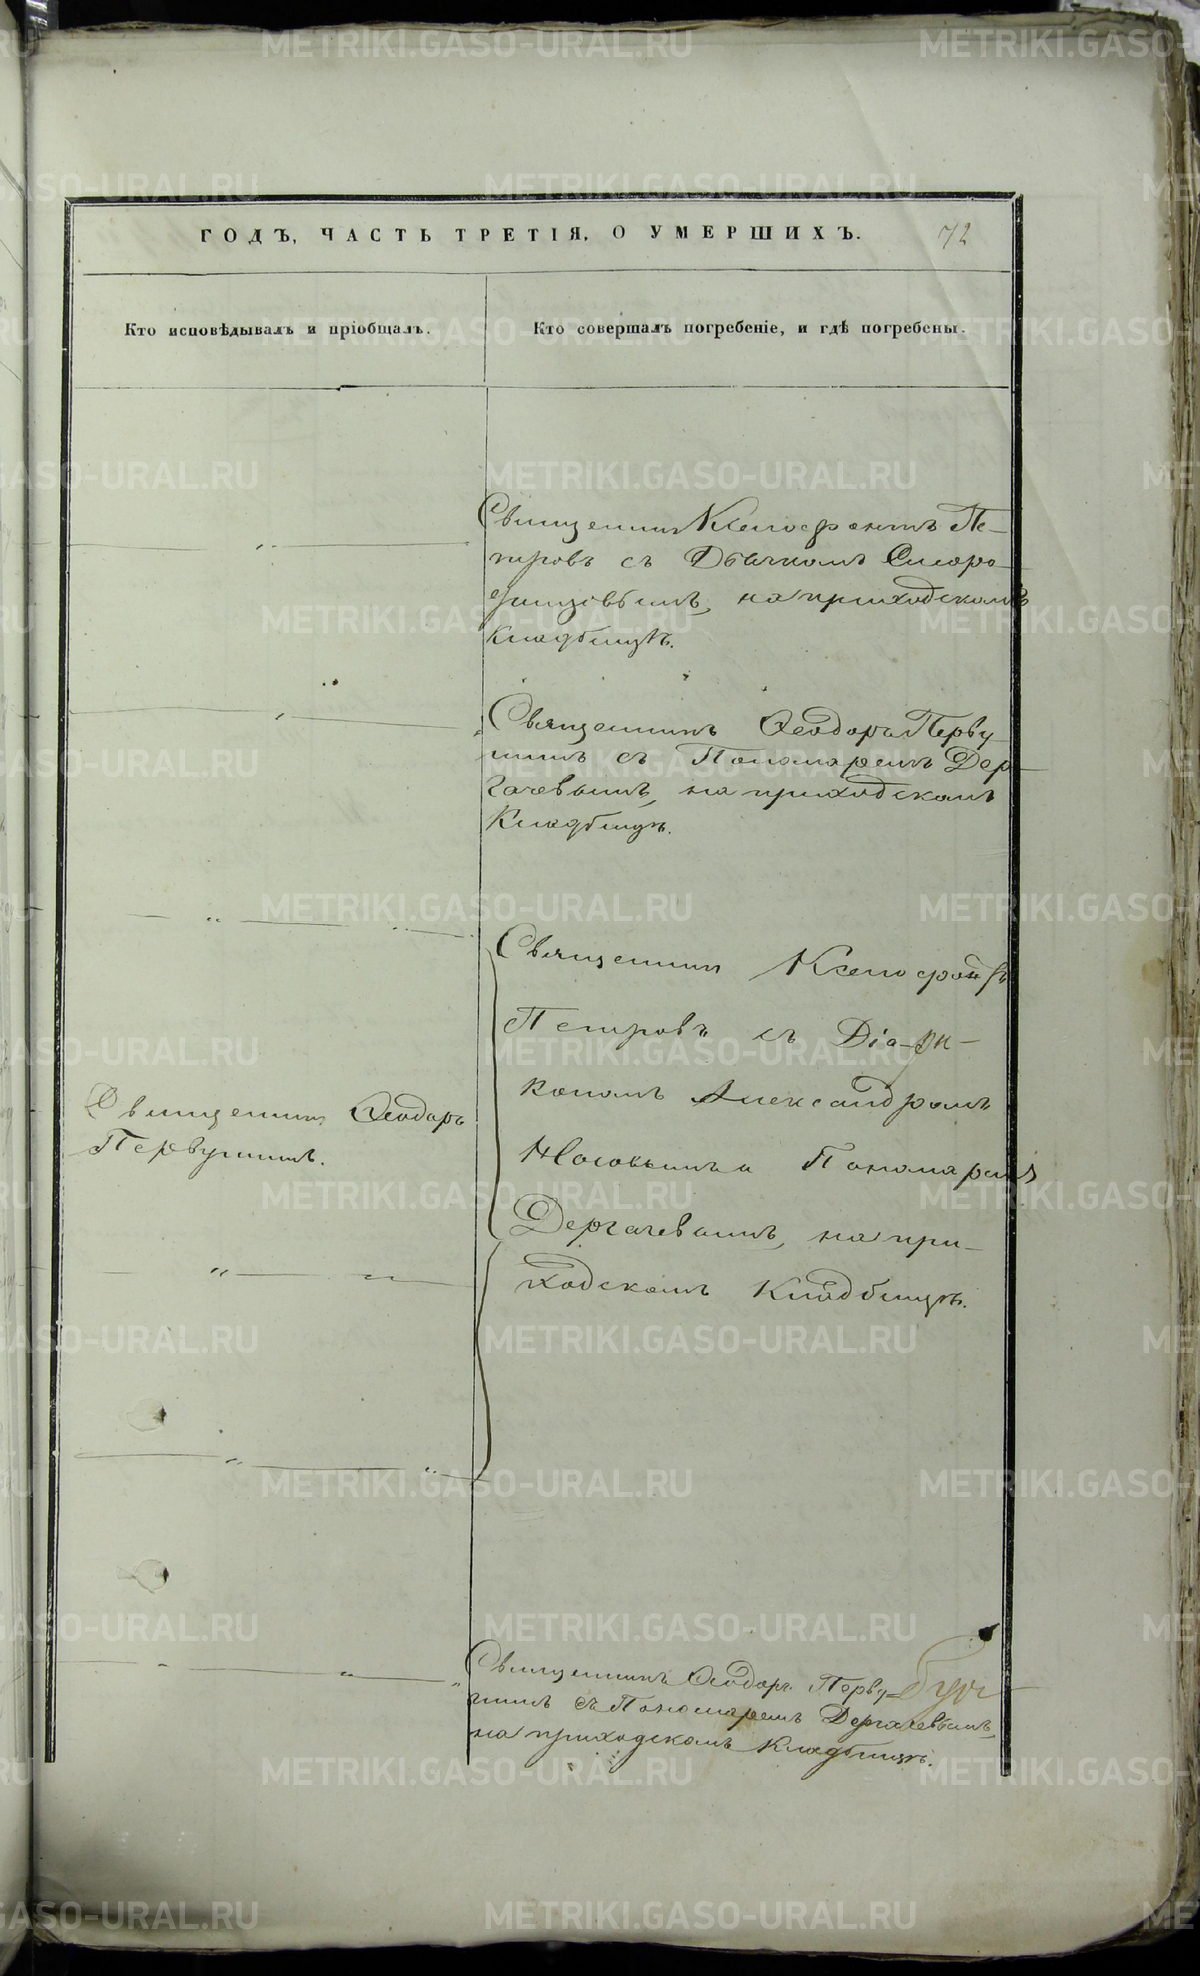 ГОДЪ, ЧАСТЬ ТРЕТІЯ, О УМЕРШИХЪ.
72
Кто исповѣдывалъ и пріобщалъ.
Кто совершалъ погребеніе, и гдѣ погребены.
Священникъ Ксенофонтъ Пе-
тровъ съ Дьячкомъ Сиоро-
на приходскомъ
Кладбищѣ.
Священникъ Ѳеодоръ Перву
шинъ съ Пономаремъ Дер-
гачевымъ, на приходскомъ
Кладбищѣ.
Священникъ Ксенофонтъ
Петровъ съ Діа-
кономъ Александромъ
Носовымъ и Пономаремъ
Дергачевымъ, на при-
ходскомъ Кладбищѣ.
Священникъ Ѳеодоръ
Первушинъ.
Священникъ Ѳеодоръ Перву-
шинъ съ Пономаремъ Дергачевымъ,
на приходскомъ Кладбищѣ.
METRIKI.GASO-URAL.RU